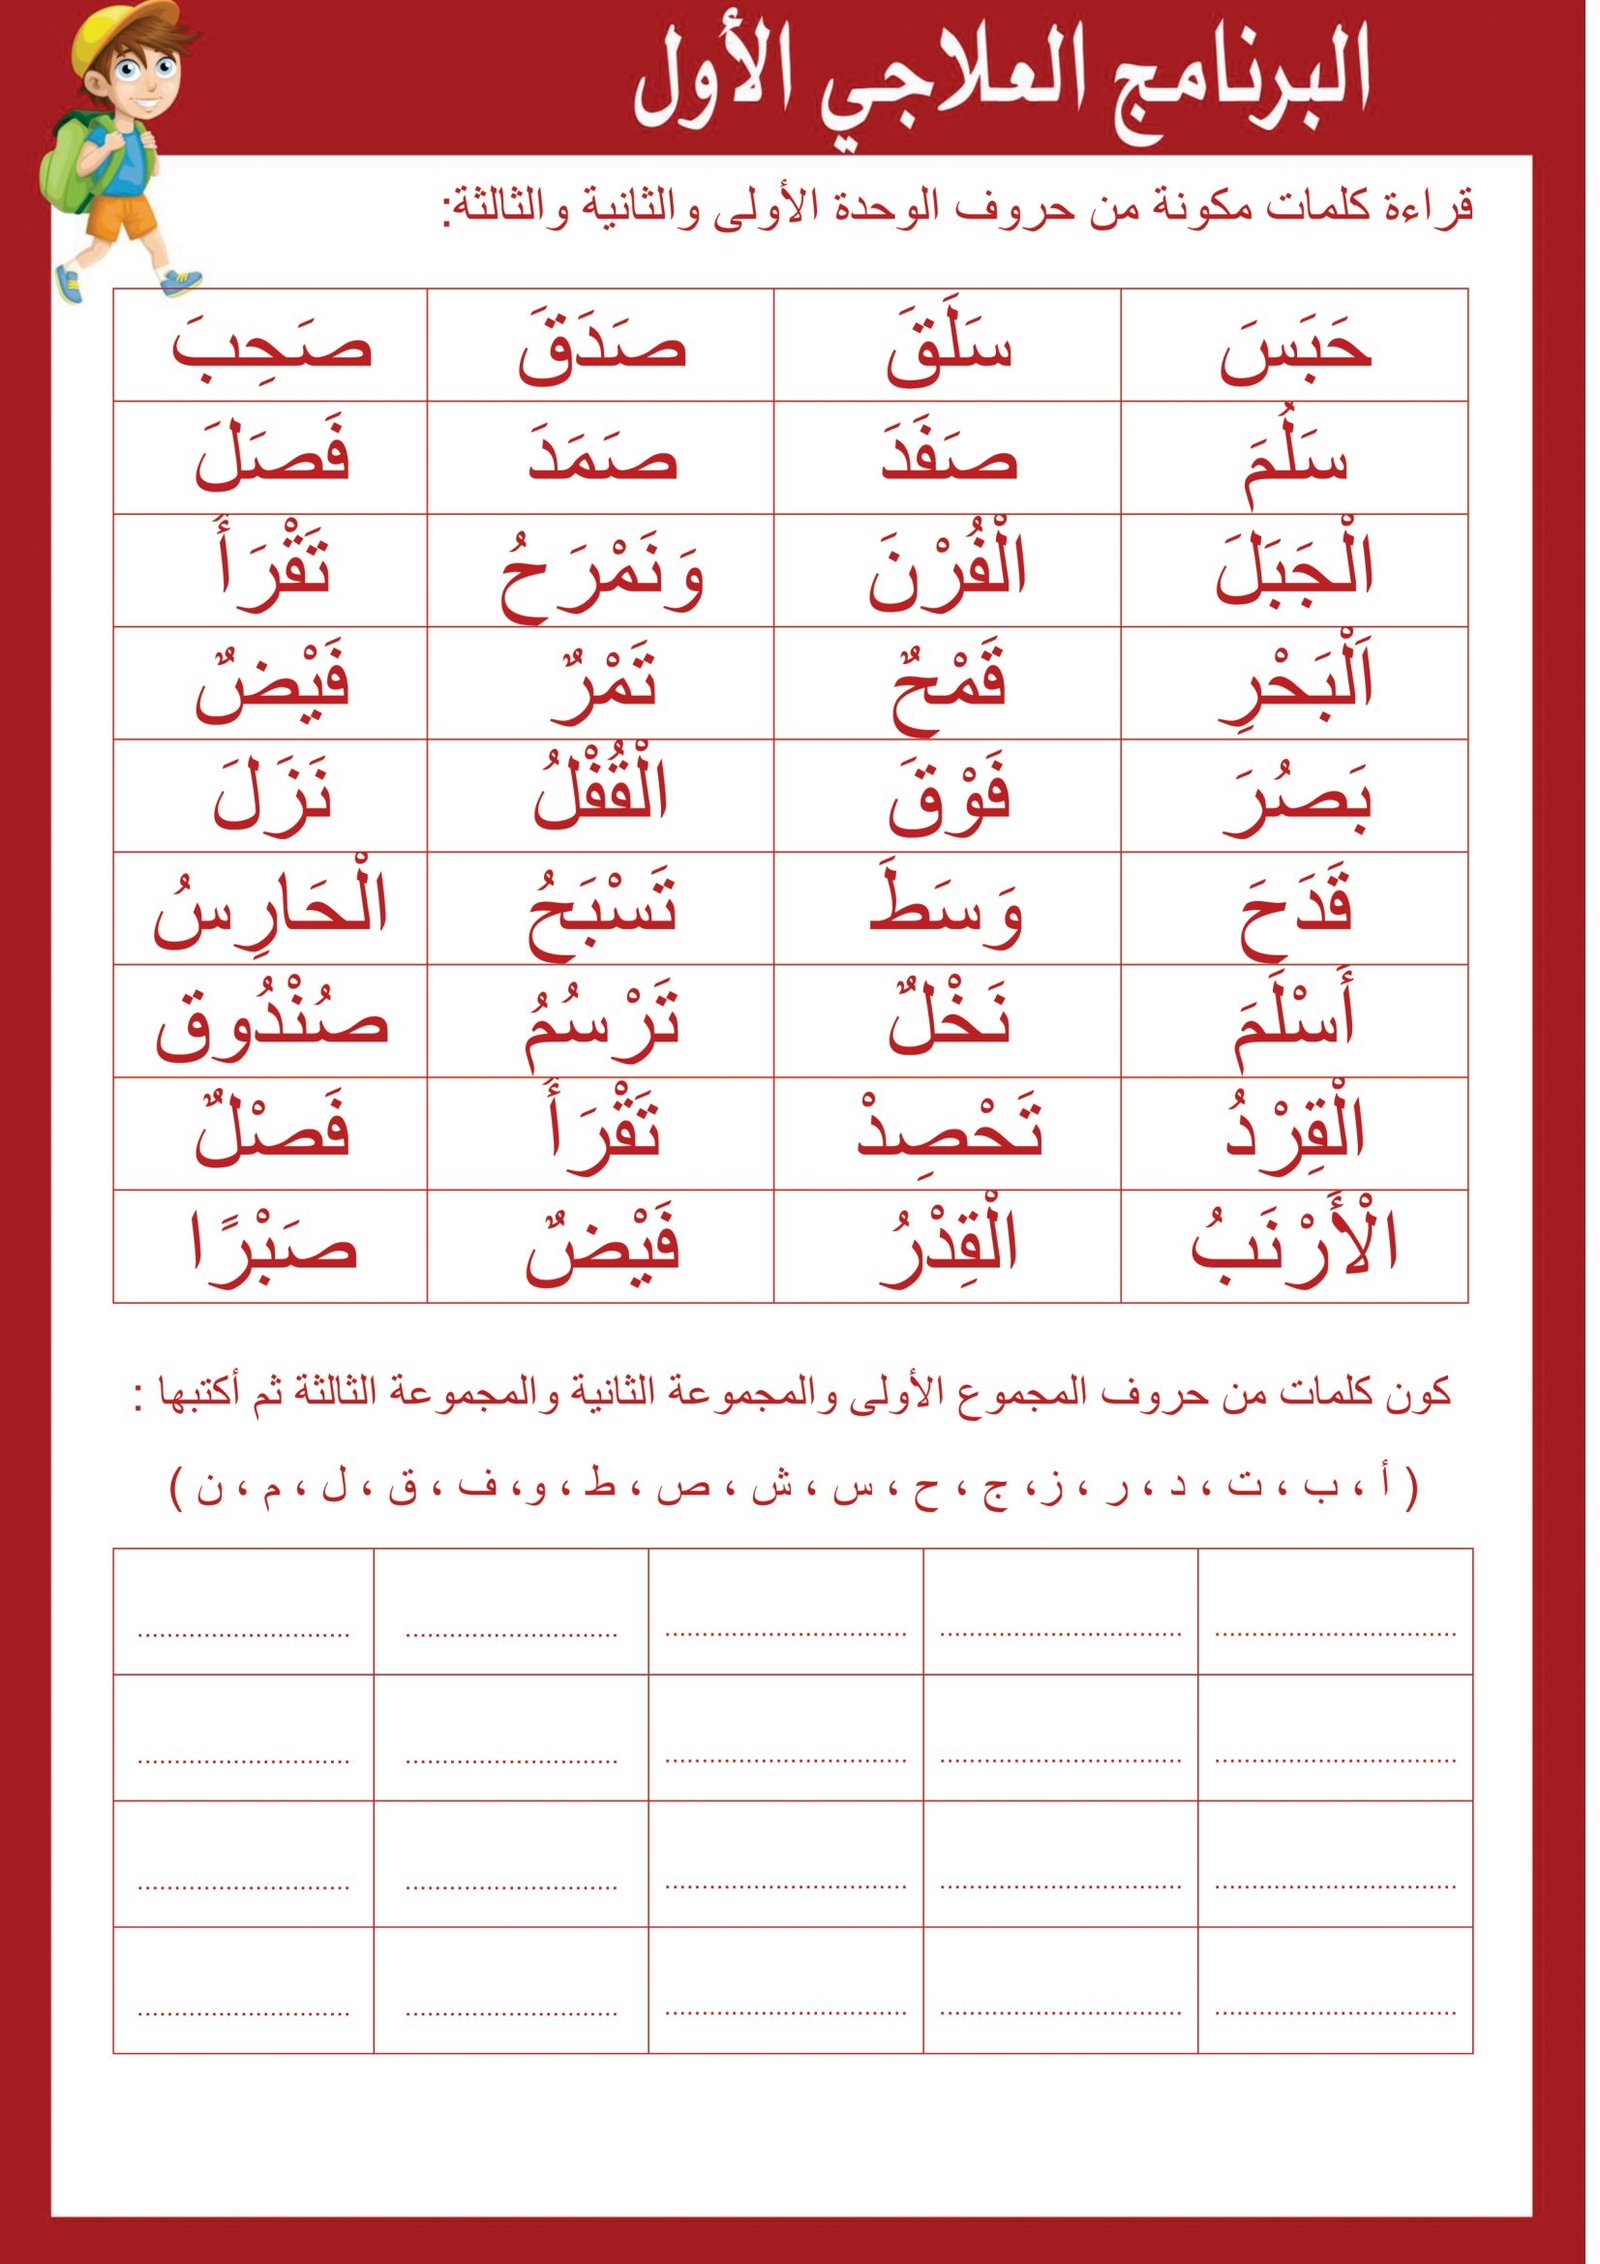 البرنامج العلاجي الأول
قراءة كلمات مكونة من حروف الوحدة الأولى والثانية والثالثة:
حَبَسَ سَلَقَ صَدَقَ صَحِبَ
سَلُمَ صَفَدَ صَمَدَ فَصَلَ
الْجَبَلَ الْفُرْنَ وَنَمْرَحُ تَقْرَأَ
اَلْبَحْرِ قَمْحٌ تَمْرٌ فَيْضٌ
بَصُرَ فَوْقَ الْقُفْلُ نَزَلَ
قَدَحَ وَسَطَ تَسْبَحُ الْحَارِسُ
أَسْلَمَ نَخْلٌ تَرْسُمُ صُنْدُوق
الْقِرْدُ تَحْصِدْ تَقْرَأَ فَصْلٌ
الْأَرْنَبُ الْقِدْرُ فَيْضٌ صَبْرًا
كون كلمات من حروف المجموع الأولى والمجموعة الثانية والمجموعة الثالثة ثم أكتبها :
( أ ، ب ، ت ، د ، ر ، ز، ج ، ح ، س ، ش ، ص ، ط ، و، ف ، ق ، ل ، م ، ن )